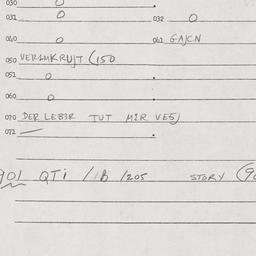 030 O
031 O 032 O
040 O 041 GAJCN
050 VERSMKRUJT (150
051 O
060 O
070 DER LEB3R TUT M2R VES)
072
901 QTi / B /205 STORY (9